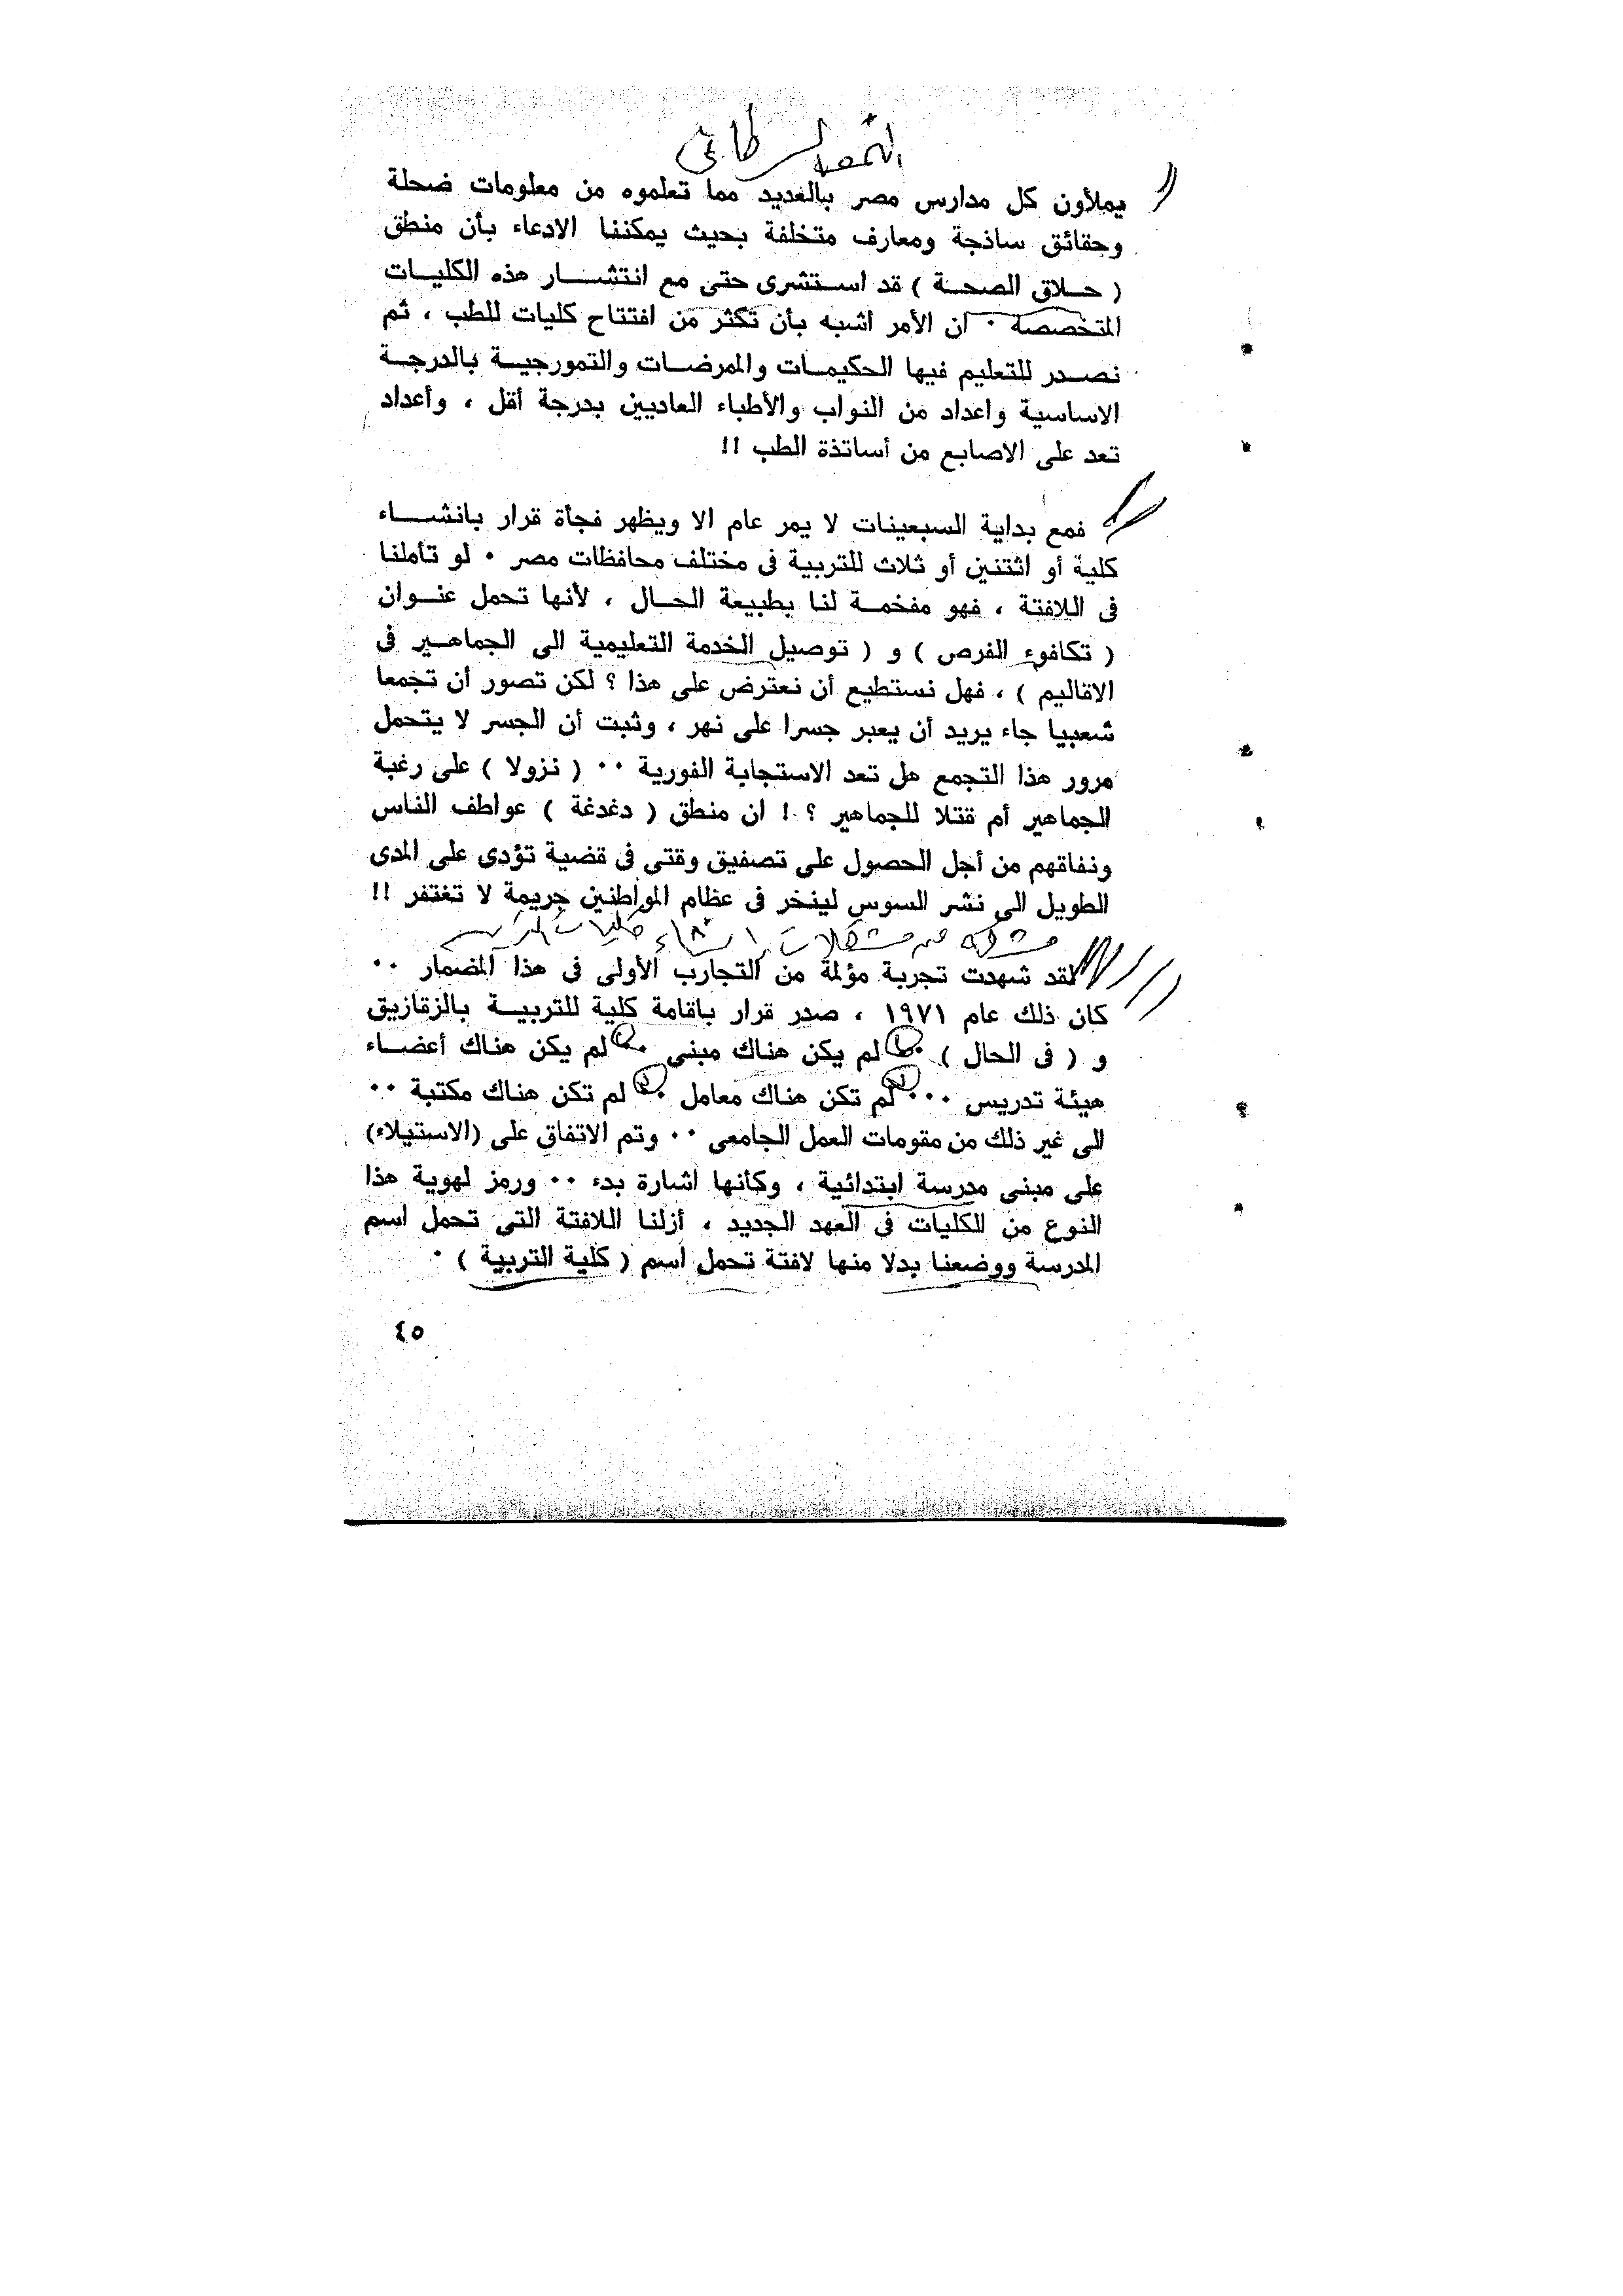 يملأون كل مدارس مصر بالعديد مما تعلموه من معلومات ضحلة
وحقائق ساذجة ومعارف متخلفة بحيث يمكننا الادعاء بأن منطق
( حلاق الصحة ) قد استشرى حتى مع انتشار هذه الكليات
المتخصصة ٠ ان الأمر أشبه بأن تكثر من افتتاح كليات للطب ، ثم
نصدر للتعليم فيها الحكيمات والممرضات والتمورجية بالدرجة
الاساسية واعداد من النواب والأطباء العاديين بدرجة أقل ، وأعداد
تعد على الاصابع من أساتذة الطب !!
فمع بداية السبعينات لا يمر عام الا ويظهر فجأة قرار بانشاء
كلية أو اثتنين أو ثلاث للتربية فى مختلف محافظات مصر ٠ لو تأملنا
فى اللافتة ، فهو مفخمة لنا بطبيعة الحال ، لأنها تحمل عنوان
( تكافوء الفرص ) و ( توصيل الخدمة التعليمية الى الجماهير فى
الاقاليم ) ، فهل نستطيع أن نعترض على هذا ؟ لكن تصور أن تجمعا
شعبيا جاء يريد أن يعبر جسرا على نهر ، وثبت أن الجسر لا يتحمل
مرور هذا التجمع هل تعد الاستجابة الفورية ٠٠ ( نزولا ) على رغبة
الجماهير أم قتلا للجماهير ؟ ! ان منطق ( دغدغة ) عواطف الناس
ونفاقهم من أجل الحصول على تصفيق وقتى فى قضية تؤدى على المدى
الطويل الى نشر السوس لينخر فى عظام المواطنين جريمة لا تغتفر !!
مشكلة من مشكلات إنشاء كليات
لقد شهدت تجربة مؤلمة من التجارب الأولى فى هذا المضمار ٠٠
كان ذلك عام ١٩٧١ ، صدر قرار باقامة كلية للتربية بالزقازيق
و ( فى الحال ) ٠ لم يكن هناك مبنى ٠٠ لم يكن هناك أعضاء
هيئة تدريس ٠٠٠ لم تكن هناك معامل ٠ لم تكن هناك مكتبة ٠٠
الى غير ذلك من مقومات العمل الجامعى ٠٠ وتم الاتفاق على (الاستيلاء)
على مبنى مدرسة ابتدائية ، وكأنها اشارة بدء ٠٠ ورمز لهوية هذا
النوع من الكليات فى العهد الجديد ، أزلنا اللافتة التى تحمل اسم
المدرسة ووضعنا بدلا منها لافتة تحمل اسم ( كلية التربية ) ٠
٤٥